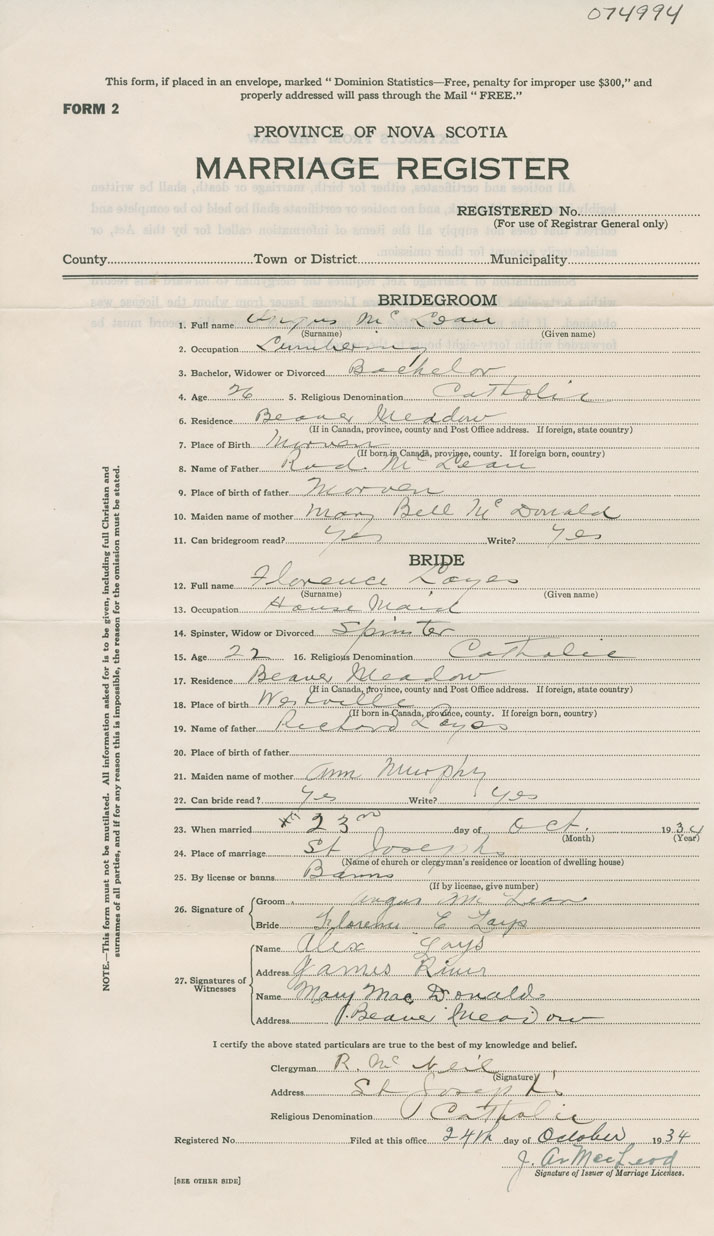 074994
This form, if placed in an envelope, marked "Dominion Statistics—Free, penalty for improper use $300," and
properly addressed will pass through the Mail "FREE."
FORM 2
PROVINCE OF NOVA SCOTIA
MARRIAGE REGISTER
REGISTERED No.
(For use of Registrar General only)
County Town or District Municipality
BRIDEGROOM
1. Full name Angus Mc Lean
(Surname) (Given name)
2. Occupation Lumbering
3. Bachelor, Widower or Divorced Bachelor
4. Age 26 5. Religious Denomination Catholic
6. Residence Beaver Meadow
(If in Canada, province, county and Post Office address. If foreign, state country)
7. Place of Birth Morven
(If born in Canada, province, county. If foreign born, country)
8. Name of Father Rod. Mc Lean
9. Place of birth of father Morven
10. Maiden name of mother Mary Bell Mc Donald
11. Can bridegroom read? Yes Write? Yes
BRIDE
12. Full name Florence
(Surname) (Given name)
13. Occupation House Maid
14. Spinster, Widow or Divorced Spinster
15. Age 22 16. Religious Denomination Catholic
17. Residence Beaver Meadow
(If in Canada, province, county and Post Office address. If foreign, state country)
18. Place of birth Westville
(If born in Canada, province, county. If foreign born, country)
19. Name of father Richard
20. Place of birth of father
21. Maiden name of mother Ann Murphy
22. Can bride read? Yes Write? Yes
23. When married 23rd day of Oct. 1934
(Month) (Year)
24. Place of marriage St Josephs
(Name of church or clergyman's residence or location of dwelling house)
25. By license or banns Banns
(If by license, give number)
26. Signature of Groom Angus Mc Lean
Bride Florence E
27. Signatures of Witnesses Name Alex
Address James River
Name Mary Mac Donald
Address Beaver Meadow
I certify the above stated particulars are true to the best of my knowledge and belief.
Clergyman R. Mc Neil
(Signature)
Address St Joseph's
Religious Denomination Catholic
Registered No. Filed at this office 24th day of October 1934
J. A. MacLeod
Signature of Issuer of Marriage Licenses.
[SEE OTHER SIDE]
NOTE.—This form must not be mutilated. All information asked for is to be given, including full Christian and
surnames of all parties, and if for any reason this is impossible, the reason for the omission must be stated.